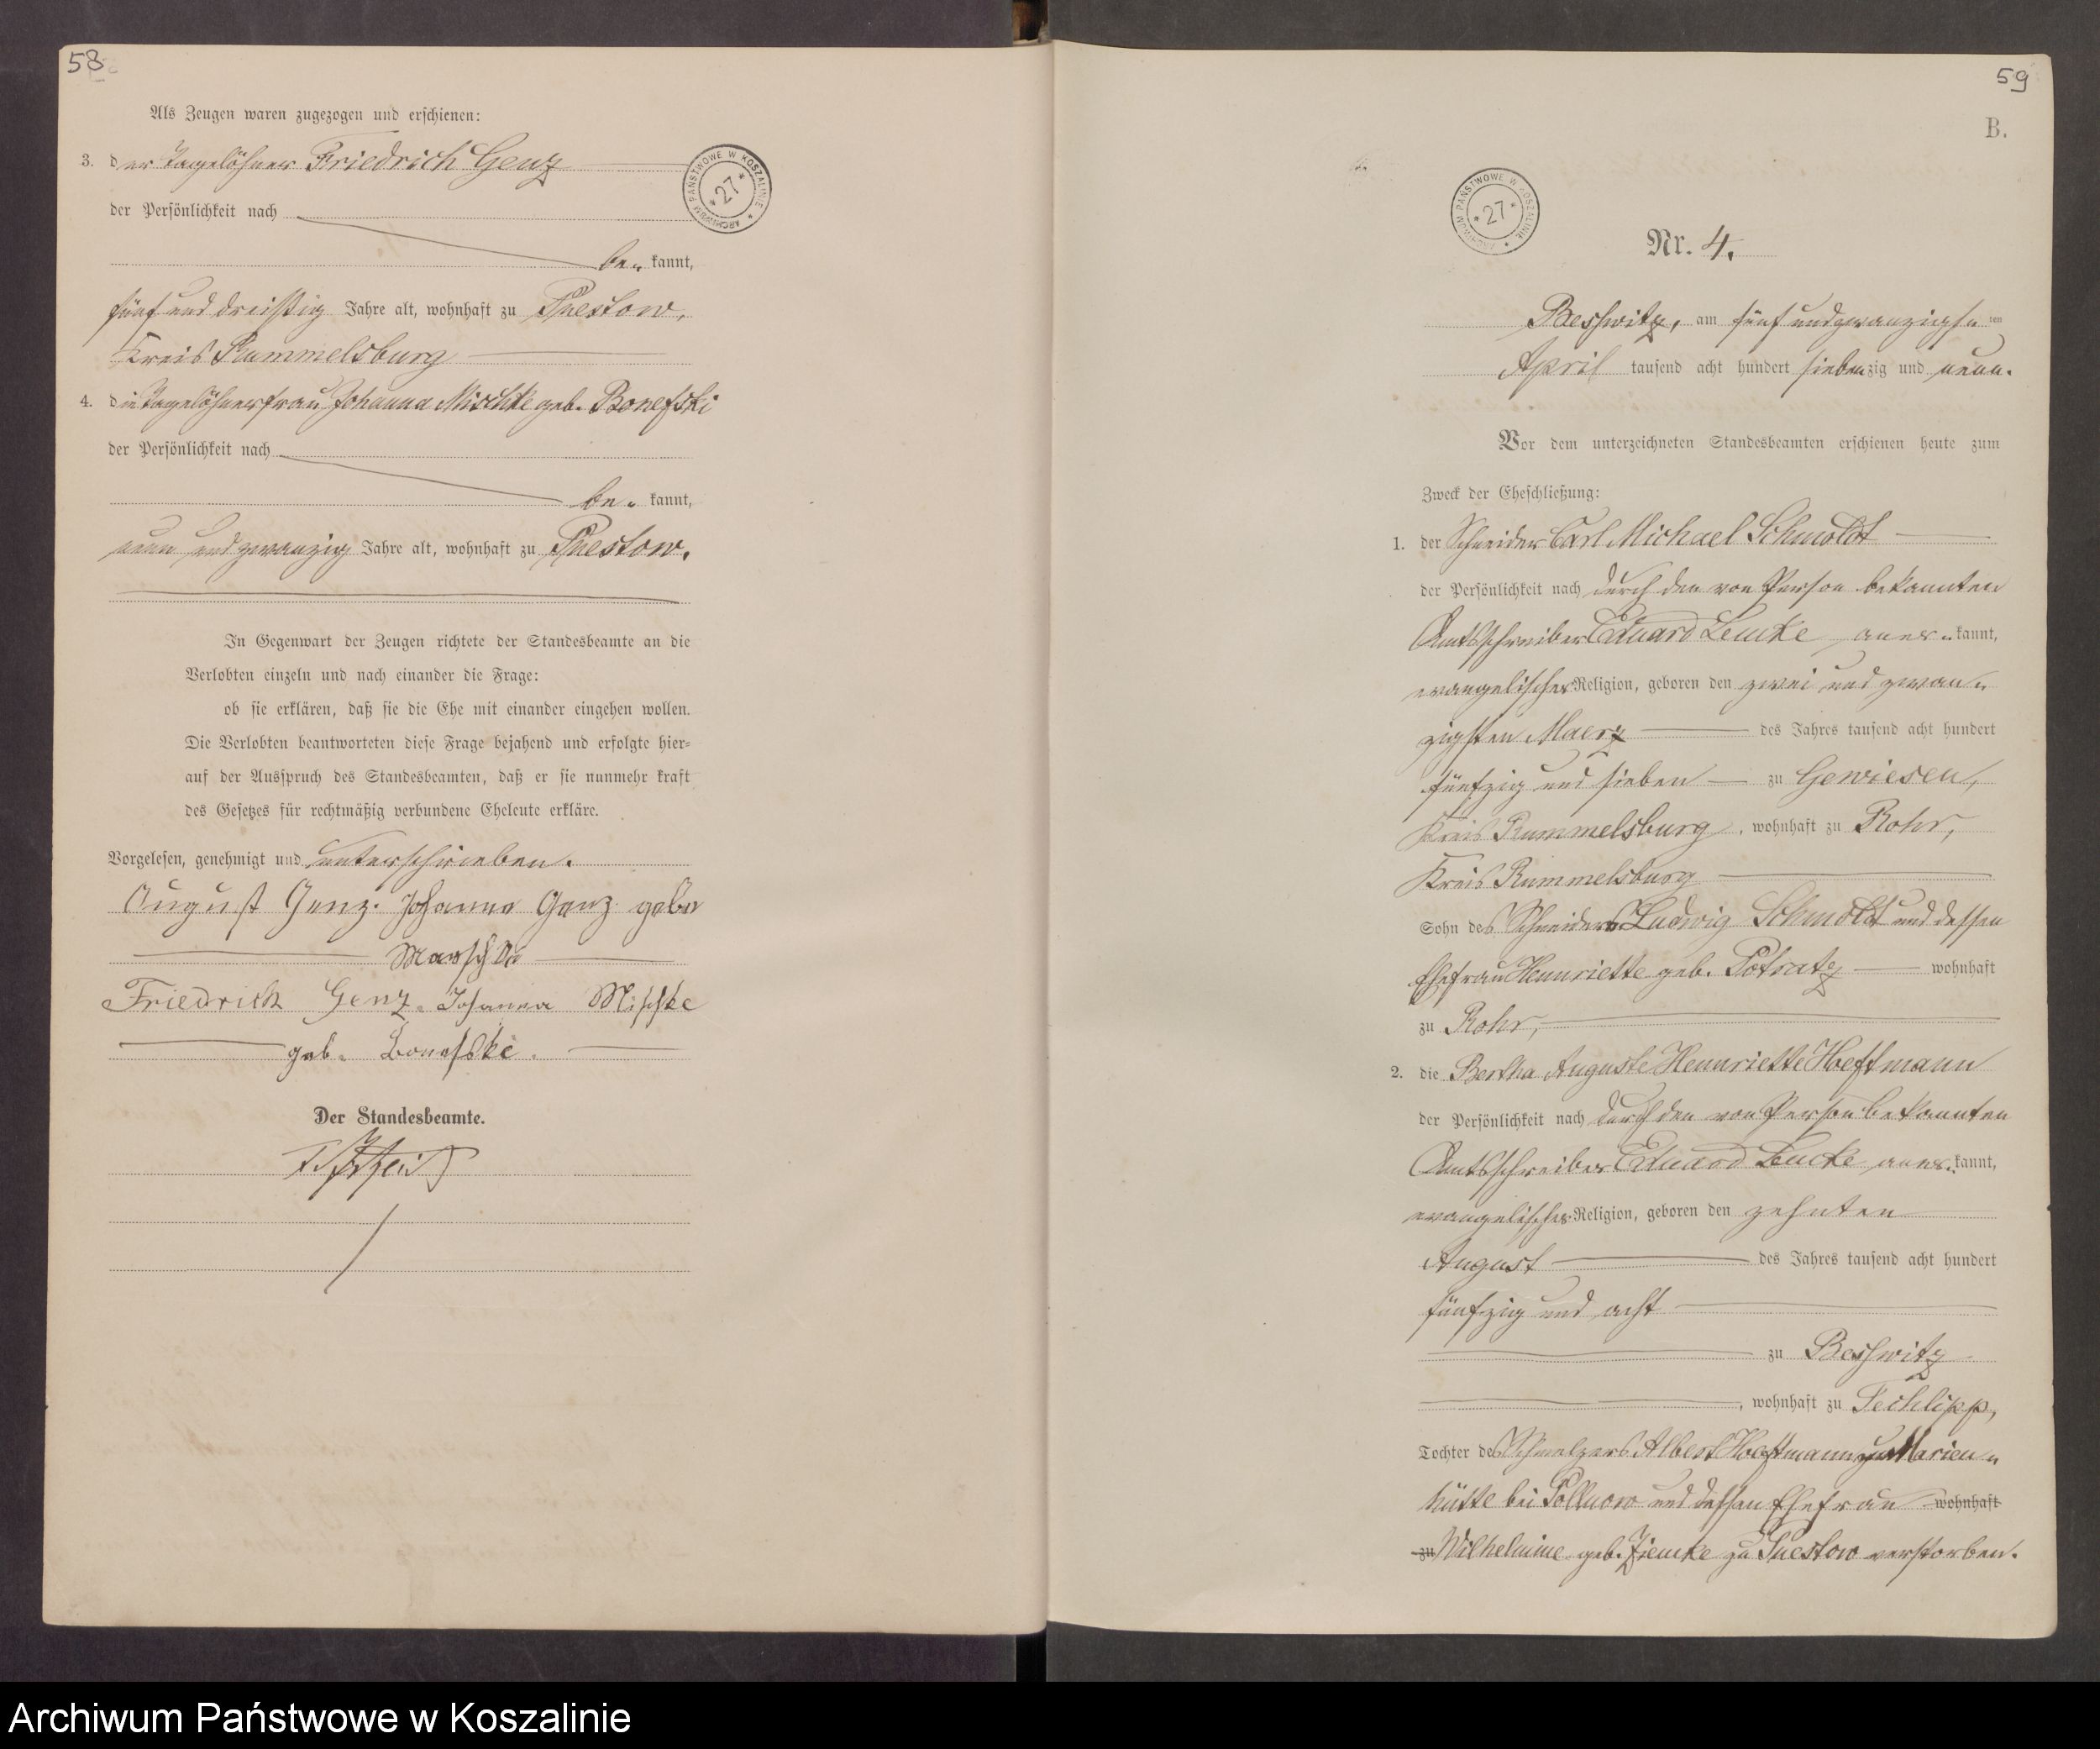 58
Als Zeugen waren zugezogen und erschienen:
3. der Tagelöhner Friedrich Genz
der Persönlichkeit nach
be- kannt,
fünf und dreißig Jahre alt, wohnhaft zu Puestow,
Kreis Rummelsburg
4. die Tagelöhnerfrau Johanna Mischke geb. Bonefski
der Persönlichkeit nach
be- kannt,
neun und zwanzig Jahre alt, wohnhaft zu Puestow.
In Gegenwart der Zeugen richtete der Standesbeamte an die
Verlobten einzeln und nach einander die Frage:
ob sie erklären, daß sie die Ehe mit einander eingehen wollen.
Die Verlobten beantworteten diese Frage bejahend und erfolgte hier-
auf der Ausspruch des Standesbeamten, daß er sie nunmehr kraft
des Gesetzes für rechtmäßig verbundene Eheleute erkläre.
Vorgelesen, genehmigt und unterschrieben.
August Genz. Johanne Genz geb
Friedrich Genz. Johanna Mischke
geb. Bonefski.
Der Standesbeamte.
ARCHIWUM PAŃSTWOWE W KOSZALINIE
* 27 *
59
B.
ARCHIWUM PAŃSTWOWE W KOSZALINIE
* 27 *
Nr. 4.
Beßwitz, am fünf und zwanzigsten
April tausend acht hundert siebenzig und neun.
Vor dem unterzeichneten Standesbeamten erschienen heute zum
Zweck der Eheschließung:
1. der Schneider Carl Michael Schmoldt
der Persönlichkeit nach durch den von Person bekannten
Amtsschreiber Eduard Lemke aner- kannt,
evangelischer Religion, geboren den zwei und zwan-
zigsten Maerz des Jahres tausend acht hundert
fünfzig und sieben zu Gewiesen,
Kreis Rummelsburg, wohnhaft zu Rohr,
Kreis Rummelsburg
Sohn des Schneiders Ludwig Schmoldt und dessen
Ehefrau Hennriette geb. Potratz wohnhaft
zu Rohr,
2. die Bertha Auguste Hennriette Hoeftmann
der Persönlichkeit nach durch den von Person bekannten
Amtsschreiber Eduard Lemke aner- kannt,
evangelischer Religion, geboren den zehnten
August des Jahres tausend acht hundert
fünfzig und acht
zu Beßwitz
, wohnhaft zu Techlipp,
Tochter des Schmelzers Albert Hoeftmann zu Marien-
hütte bei Pollnow und dessen Ehefrau wohnhaft
zu Wilhelmine geb. Ziemke zu Puestow verstorben.
Archiwum Państwowe w Koszalinie